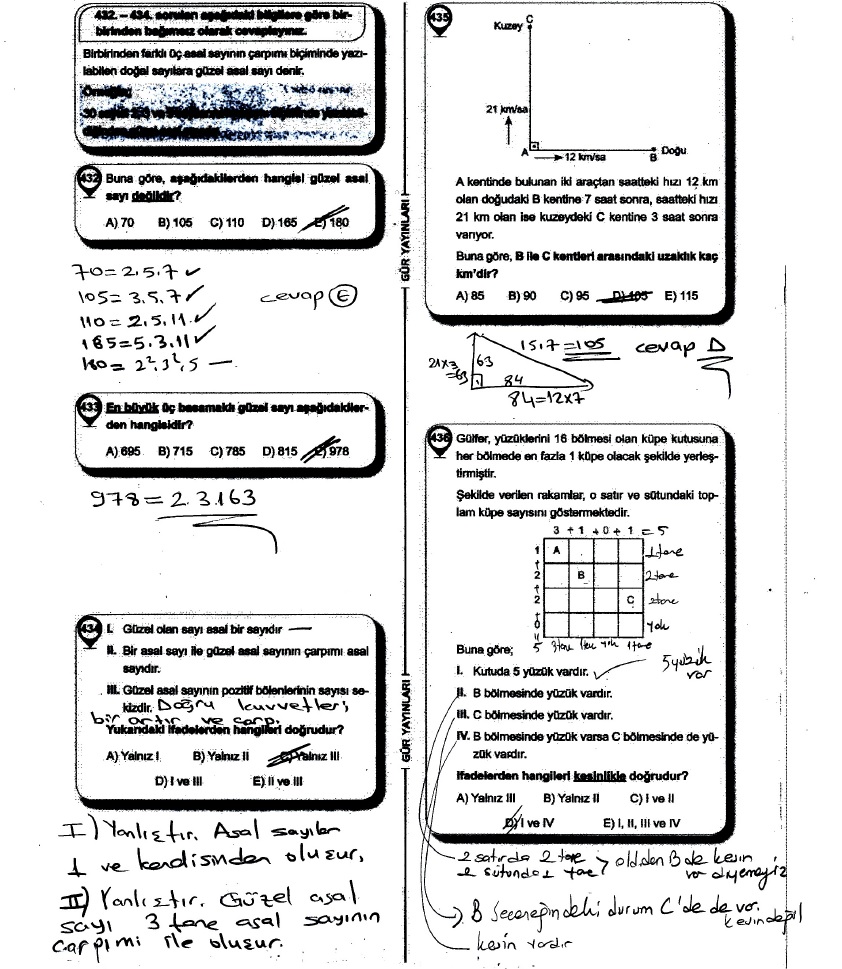 432. – 434. soruları aşağıdaki bilgilere göre bir-
birinden bağımsız olarak cevaplayınız.
Birbirinden farklı üç asal sayının çarpımı biçiminde yazı-
labilen doğal sayılara güzel asal sayı denir.
Örneğin;
432 Buna göre, aşağıdakilerden hangisi güzel asal
sayı değildir?
A) 70 B) 105 C) 110 D) 165 E) 180
70 = 2.5.7 ✓
105 = 3.5.7 ✓
110 = 2.5.11 ✓
165 = 5.3.11 ✓
180 = 2².3².5 —
cevap E
433 En büyük üç basamaklı güzel sayı aşağıdakiler-
den hangisidir?
A) 695 B) 715 C) 785 D) 815 E) 978
978 = 2.3.163
434 I. Güzel olan sayı asal bir sayıdır —
II. Bir asal sayı ile güzel asal sayının çarpımı asal
sayıdır.
III. Güzel asal sayının pozitif bölenlerinin sayısı se-
kizdir. Doğru kuvvetleri
bir artır ve çarp.
Yukarıdaki ifadelerden hangileri doğrudur?
A) Yalnız I B) Yalnız II C) Yalnız III
D) I ve III E) II ve III
I) Yanlıştır. Asal sayılar
1 ve kendisinden oluşur.
II) Yanlıştır. Güzel asal
sayı 3 tane asal sayının
çarpımı ile oluşur.
GÜR YAYINLARI
GÜR YAYINLARI
435
Kuzey C
21 km/sa
A 12 km/sa B Doğu
A kentinde bulunan iki araçtan saatteki hızı 12 km
olan doğudaki B kentine 7 saat sonra, saatteki hızı
21 km olan ise kuzeydeki C kentine 3 saat sonra
varıyor.
Buna göre, B ile C kentleri arasındaki uzaklık kaç
km'dir?
A) 85 B) 90 C) 95 D) 105 E) 115
21x3
=63
63
15.7 = 105
84
84=12x7
cevap D
436 Gülfer, yüzüklerini 16 bölmesi olan küpe kutusuna
her bölmede en fazla 1 küpe olacak şekilde yerleş-
tirmiştir.
Şekilde verilen rakamlar, o satır ve sütundaki top-
lam küpe sayısını göstermektedir.
3 + 1 + 0 + 1 = 5
1 A 1 tane
+
2 B 2 tane
+
2 C 2 tane
+
0 yok
5 3 tane 1 tane yok 1 tane
Buna göre;
I. Kutuda 5 yüzük vardır. ✓ 5 yüzük
var
II. B bölmesinde yüzük vardır.
III. C bölmesinde yüzük vardır.
IV. B bölmesinde yüzük varsa C bölmesinde de yü-
zük vardır.
İfadelerden hangileri kesinlikle doğrudur?
A) Yalnız III B) Yalnız II C) I ve II
D) I ve IV E) I, II, III ve IV
2 satırda 2 tane
2 sütunda 1 tane
old.dan B de kesin
var diyemeyiz
B seçeneğindeki durum C'de de var.
kesin değil
kesin vardır